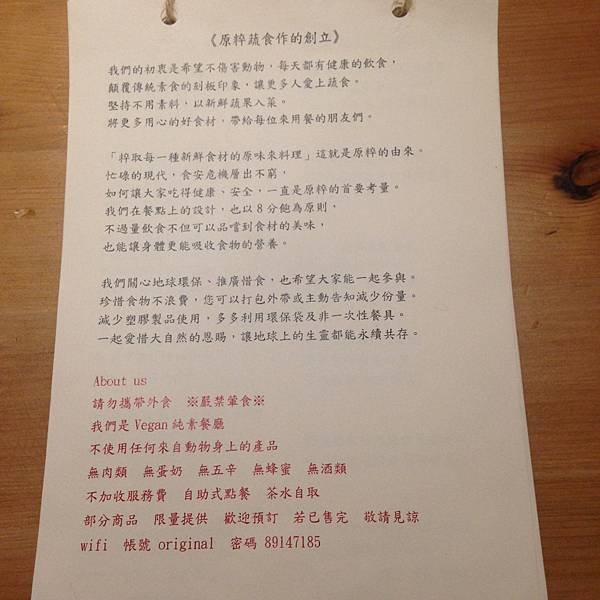 《原粹蔬食作的創立》
我們的初衷是希望不傷害動物，每天都有健康的飲食，
顛覆傳統素食的刻板印象，讓更多人愛上蔬食。
堅持不用素料，以新鮮蔬果入菜。
將更多用心的好食材，帶給每位來用餐的朋友們。
「粹取每一種新鮮食材的原味來料理」這就是原粹的由來。
忙碌的現代，食安危機層出不窮，
如何讓大家吃得健康、安全，一直是原粹的首要考量。
我們在餐點上的設計，也以8分飽為原則，
不過量飲食不但可以品嚐到食材的美味，
也能讓身體更能吸收食物的營養。
我們關心地球環保、推廣惜食，也希望大家能一起參與。
珍惜食物不浪費，您可以打包外帶或主動告知減少份量。
減少塑膠製品使用，多多利用環保袋及非一次性餐具。
一起愛惜大自然的恩賜，讓地球上的生靈都能永續共存。
About us
請勿攜帶外食 ※嚴禁葷食※
我們是Vegan純素餐廳
不使用任何來自動物身上的產品
無肉類 無蛋奶 無五辛 無蜂蜜 無酒類
不加收服務費 自助式點餐 茶水自取
部分商品 限量提供 歡迎預訂 若已售完 敬請見諒
wifi 帳號 original 密碼 89147185